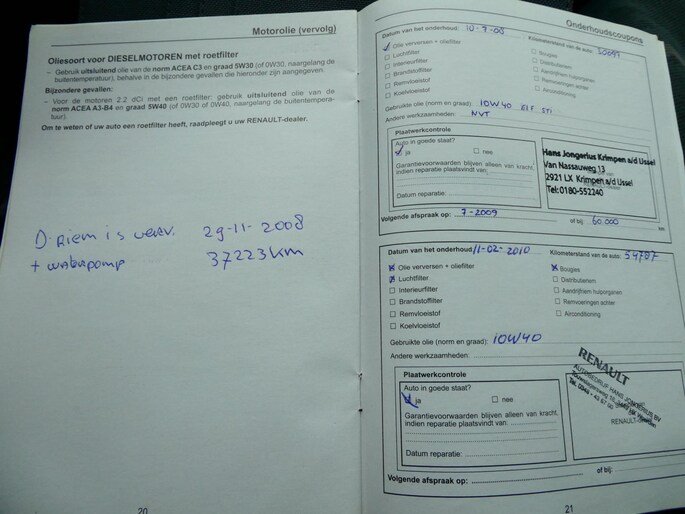 Motorolie (vervolg)
Oliesoort voor DIESELMOTOREN met roetfilter
– Gebruik uitsluitend olie van de norm ACEA C3 en graad 5W30 (of 0W30, naargelang de
buitentemperatuur), behalve in de bijzondere gevallen die hieronder zijn aangegeven.
Bijzondere gevallen:
– Voor de motoren 2.2 dCi met een roetfilter: gebruik uitsluitend olie van de
norm ACEA A3-B4 en graad 5W40 (of 0W30 of 0W40, naargelang de buitentempera-
tuur).
Om te weten of uw auto een roetfilter heeft, raadpleegt u uw RENAULT-dealer.
D. Riem is verv. 29-11-2008
+ waterpomp 37223km
20
Onderhoudscoupons
Datum van het onderhoud: 10-7-08 Kilometerstand van de auto:
Olie verversen + oliefilter
Luchtfilter
Interieurfilter
Brandstoffilter
Remvloeistof
Koelvloeistof
Bougies
Distributieriem
Aandrijfriem hulporganen
Remvoeringen achter
Airconditioning
Gebruikte olie (norm en graad): 10W40 ELF STI
Andere werkzaamheden: NVT
Plaatwerkcontrole
Auto in goede staat?
ja nee
Garantievoorwaarden blijven alleen van kracht,
indien reparatie plaatsvindt van:
Datum reparatie:
Hans Jongerius Krimpen a/d IJssel
Van Nassauweg 13
2921 LX Krimpen a/d IJssel
Tel: 0180-552240
Volgende afspraak op: 7-2009 of bij: 60.000 km
Datum van het onderhoud: 11-02-2010 Kilometerstand van de auto: 54787
Olie verversen + oliefilter
Luchtfilter
Interieurfilter
Brandstoffilter
Remvloeistof
Koelvloeistof
Bougies
Distributieriem
Aandrijfriem hulporganen
Remvoeringen achter
Airconditioning
Gebruikte olie (norm en graad): 10W40
Andere werkzaamheden:
Plaatwerkcontrole
Auto in goede staat?
ja nee
Garantievoorwaarden blijven alleen van kracht,
indien reparatie plaatsvindt van:
Datum reparatie:
RENAULT
AUTOBEDRIJF HANS JONGERIUS BV
RENAULT-
Volgende afspraak op: of bij: km
21